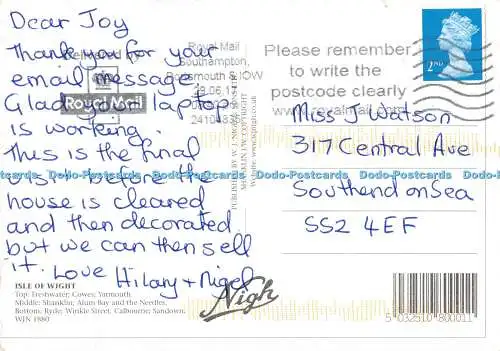 Dear Joy
Thank you for your
email message
Glad your laptop
is working.
This is the final
visit before the
house is cleared
and then decorated
but we can then sell
it. Love Hilary + Nigel
Royal Mail
Royal Mail
Southampton,
Portsmouth & IOW
Please remember
to write the
postcode clearly
www.royalmail.com
2ND
Miss J Watson
317 Central Ave
Southend on Sea
SS2 4EF
Dodo-Postcards Dodo-Postcards Dodo-Postcards Dodo-Postcards Dodo-Postcards
ISLE OF WIGHT
Top: Freshwater; Cowes; Yarmouth.
Middle: Shanklin; Alum Bay and the Needles.
Bottom: Ryde; Winkle Street, Calbourne; Sandown.
WIN 1980
Nigh
5 032510 800011